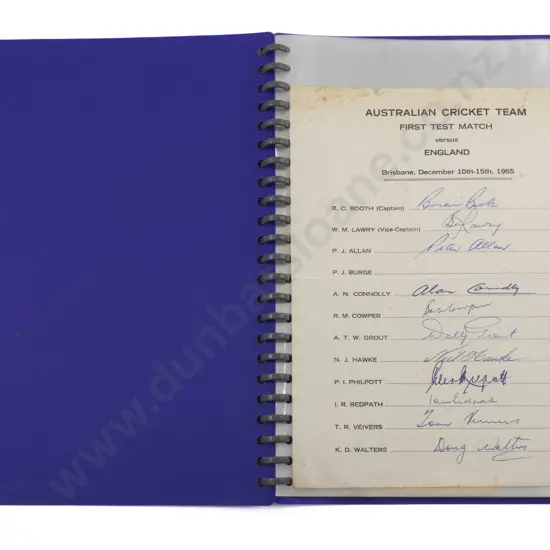 AUSTRALIAN CRICKET TEAM
FIRST TEST MATCH
versus
ENGLAND
Brisbane, December 10th-15th, 1965
B. C. BOOTH (Captain) Brian Booth
W. M. LAWRY (Vice-Captain) Bill Lawry
P. J. ALLAN Peter Allan
P. J. BURGE
A. N. CONNOLLY Alan Connolly
R. M. COWPER Bob Cowper
A. T. W. GROUT Wally Grout
N. J. HAWKE Neil Hawke
P. I. PHILPOTT Peter Philpott
I. R. REDPATH Ian Redpath
T. R. VEIVERS Tom Veivers
K. D. WALTERS Doug Walters